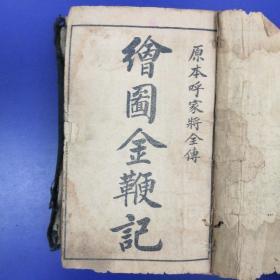 原本呼家將全傳
繪圖金鞭記